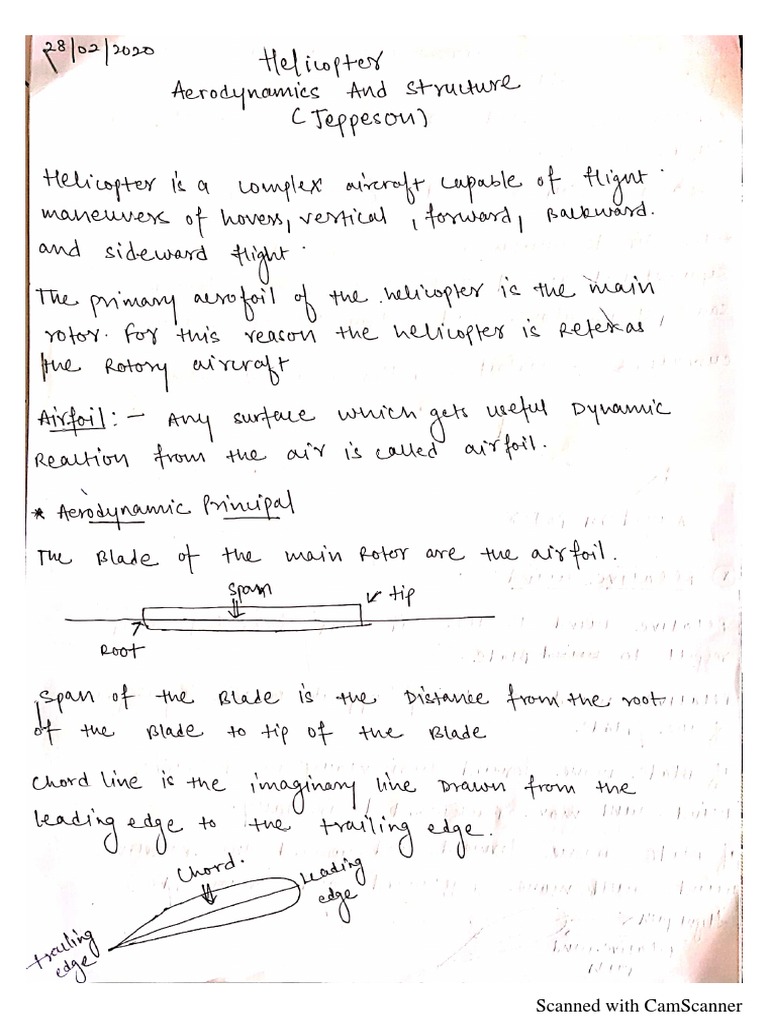 28/02/2020
Helicopter
Aerodynamics And Structure
(Jeppeson)
Helicopter is a complex aircraft capable of flight
maneuvers of hovers, vertical, forward, Backward.
and sideward flight.
The primary aerofoil of the helicopter is the main
rotor. For this reason the helicopter is Refer as
the Rotary aircraft
Airfoil:- Any surface which gets useful Dynamic
Reaction from the air is called airfoil.
* Aerodynamic Principal
The Blade of the main Rotor are the airfoil.
Span
tip
Root
Span of the Blade is the Distance from the root
of the Blade to tip of the Blade
Chord line is the imaginary line Drawn from the
leading edge to the trailing edge.
Chord.
Leading
edge
trailing
edge
Scanned with CamScanner